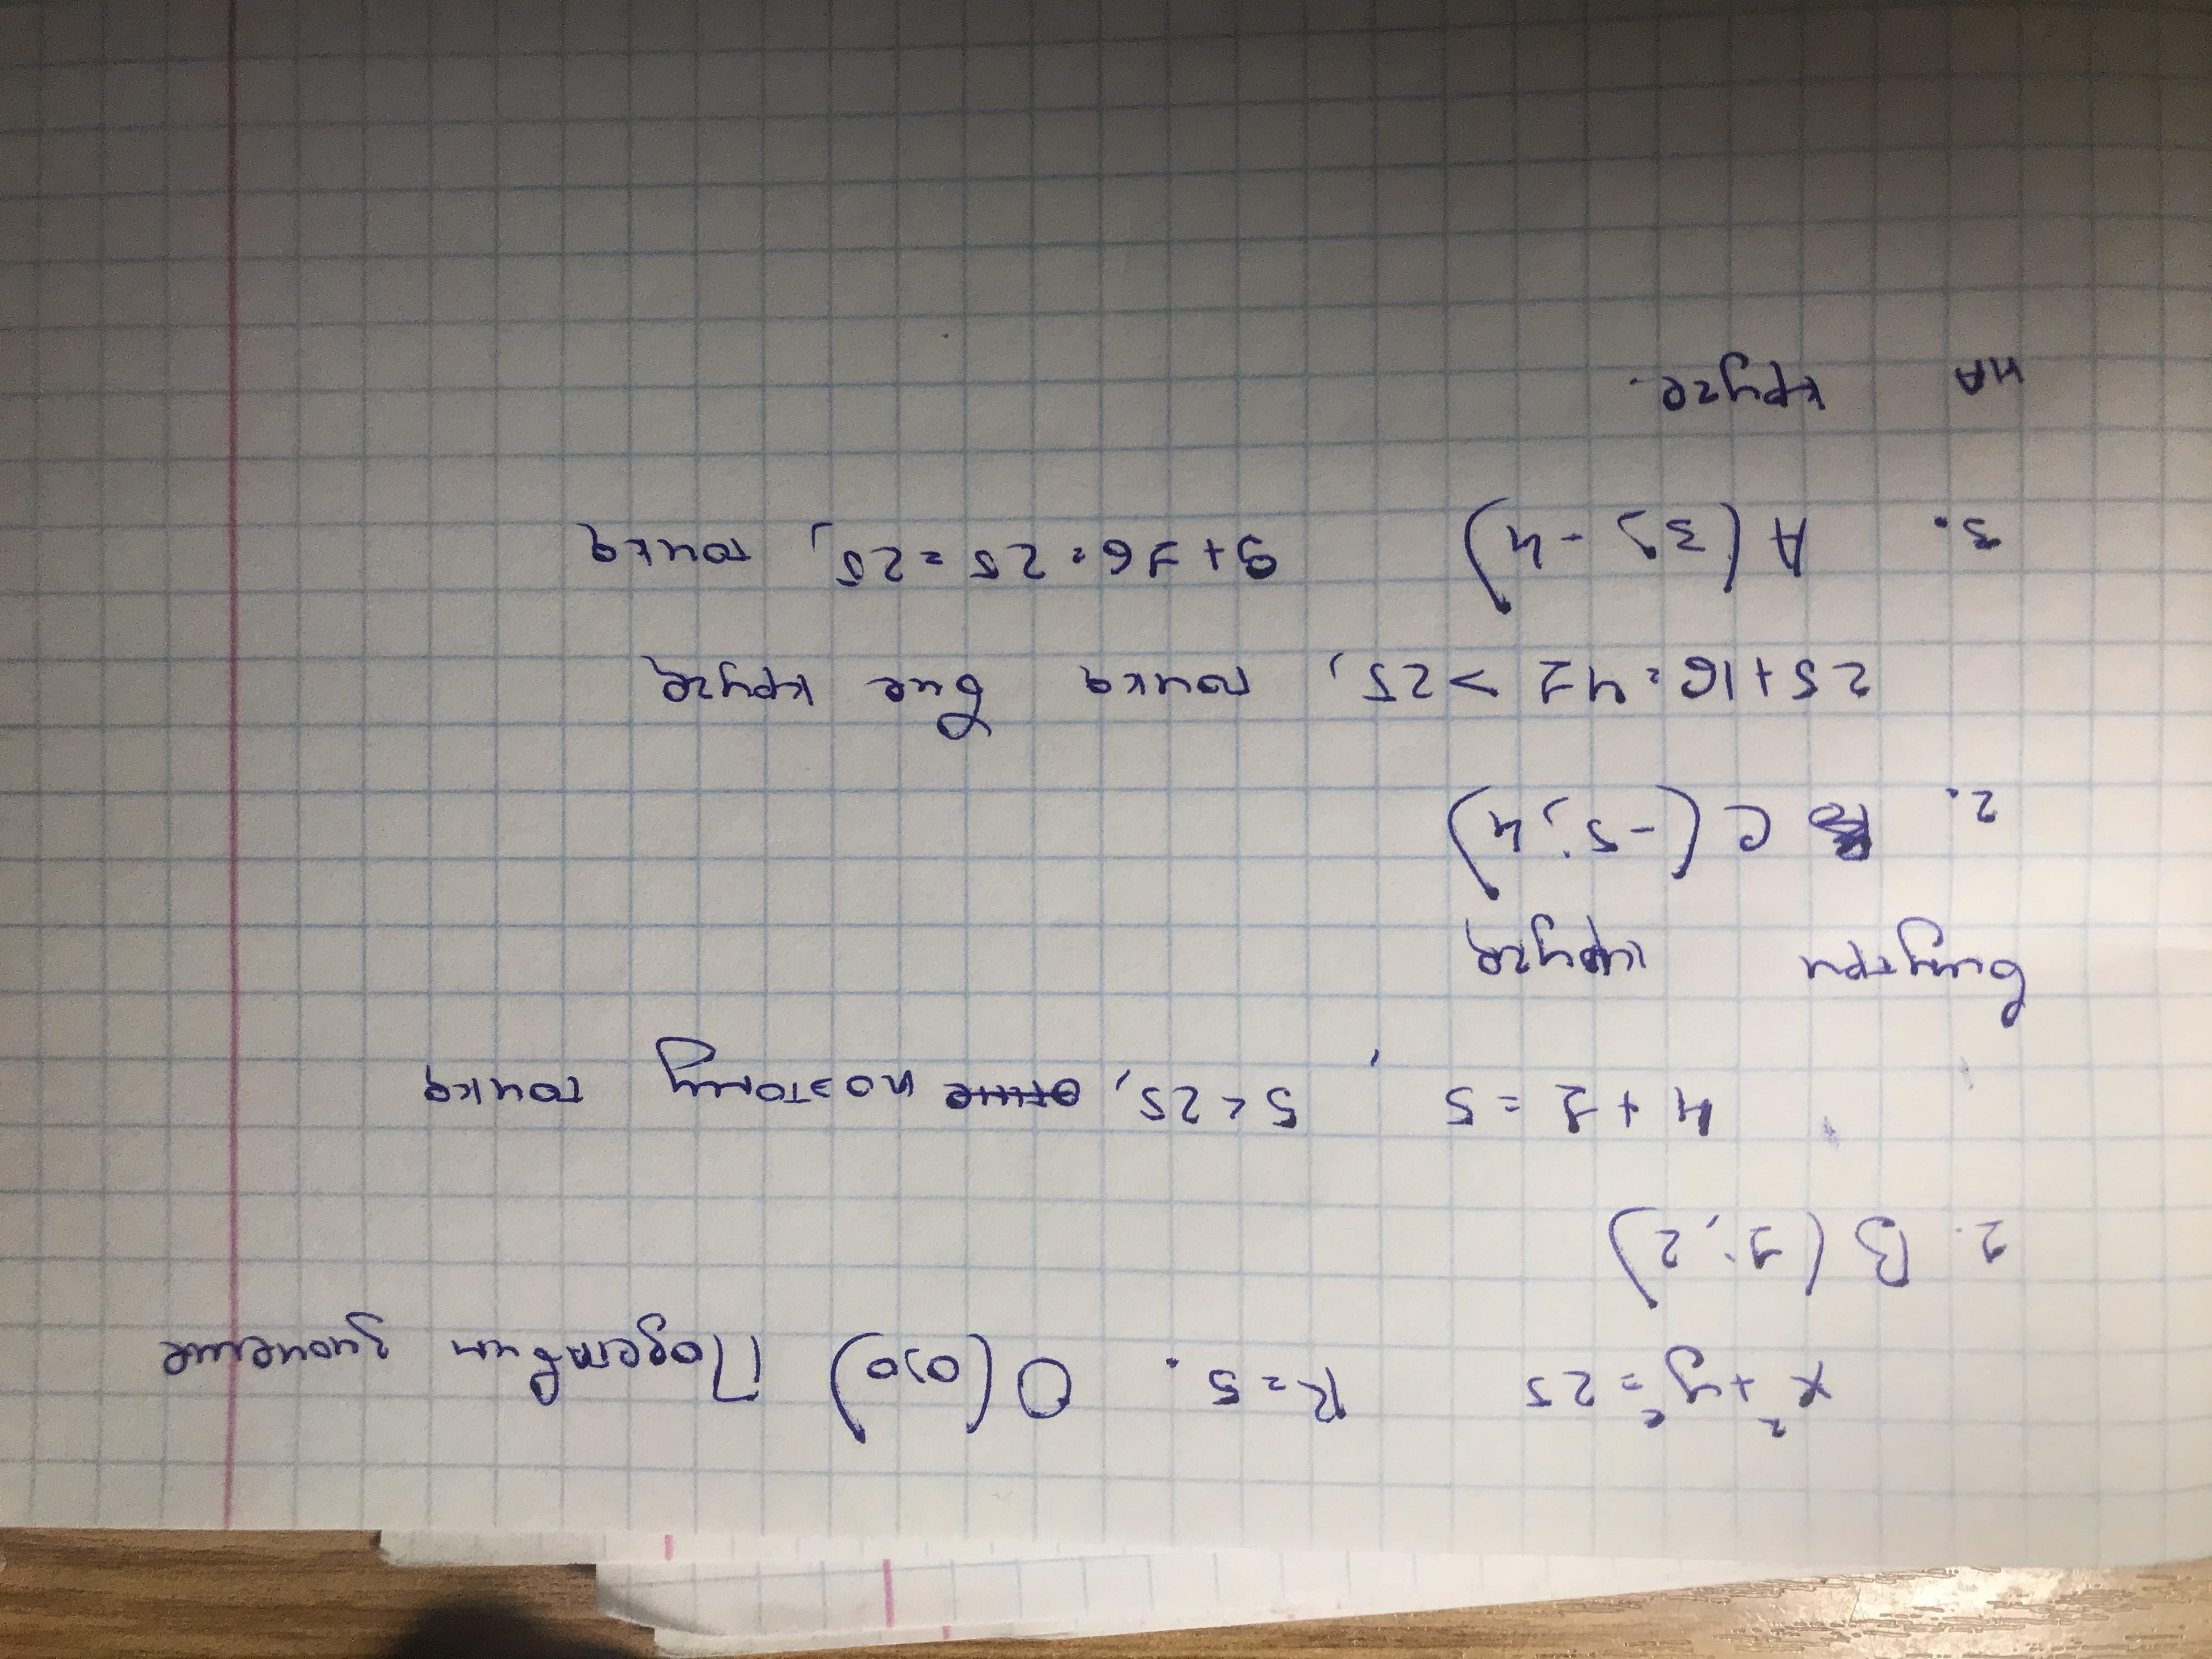 x² + y² = 25 R = 5. O(0;0) Подставим значение
1. B(1; 2)
4 + 1 = 5, 5 < 25, поэтому точка
внутри круга
2. C(-5; 4)
25 + 16 = 41 > 25, точка вне круга
3. A(3; -4) 9 + 16 = 25 = 25, точка
на круге.